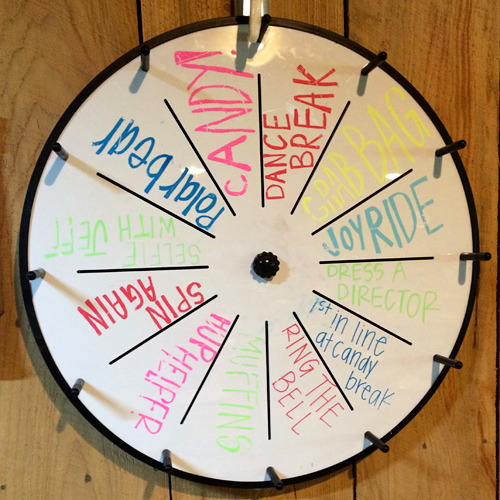 CANDY!
DANCE
BREAK
GRAB BAG
JOYRIDE
DRESS A
DIRECTOR
1st in line
at candy
break
RING THE
BELL
MUFFINS
HOP HELPER
SPIN
AGAIN
SELFIE
WITH JEFF
Polar bear